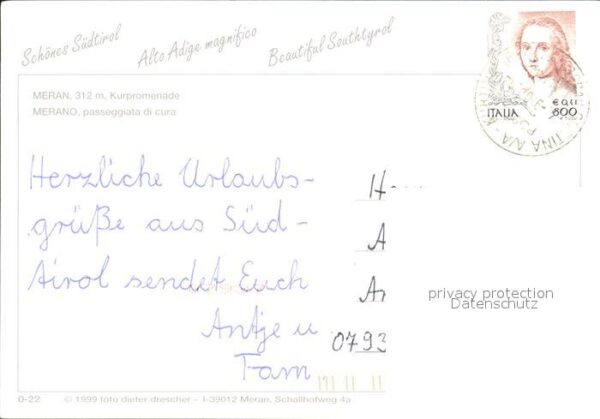 Schönes Südtirol
Alto Adige magnifico
Beautiful Southtyrol
€ 0,41
ITALIA 600
MERAN, 312 m, Kurpromenade
MERANO, passeggiata di cura
Herzliche Urlaubs-
grüße aus Süd-
tirol sendet Euch
Antje u
Fam
H
A
Ar
0793
privacy protection
Datenschutz
0-22 © 1999 foto dieter drescher – I-39012 Meran, Schallhofweg 4a